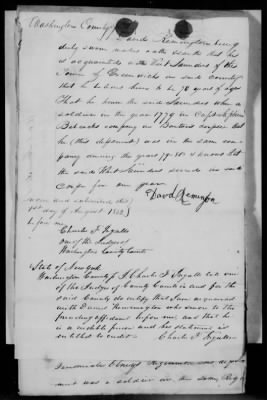 Washington County
David Remington being
duly sworn maketh oath & saith that he
is acquainted with Saunders of the
Town of Greenwich in said County
that he believes him to be 70 years of age
That he knew the said Saunders when a
soldier in the year 1779 in Capt Stephen
Babcocks company in corpse that
he (this deponent) was in the same com
pany during the years 79-80 & knows that
the said Saunders served in said
Corpse for one year
David Remington
Sworn and subscribed this
1st day of August 1832
before me
Charles F Ingalls
one of the Judges of
Washington County Courts
State of New York
Washington County I Charles F Ingalls
of the Judges of County Courts in & for the
said County do certify that I am acquainted
with David Remington who swore to the
foregoing affidavit before me and that he
is a credible person and his statement is
entitled to credit
Charles F Ingalls
ment was a soldier in the same Reg